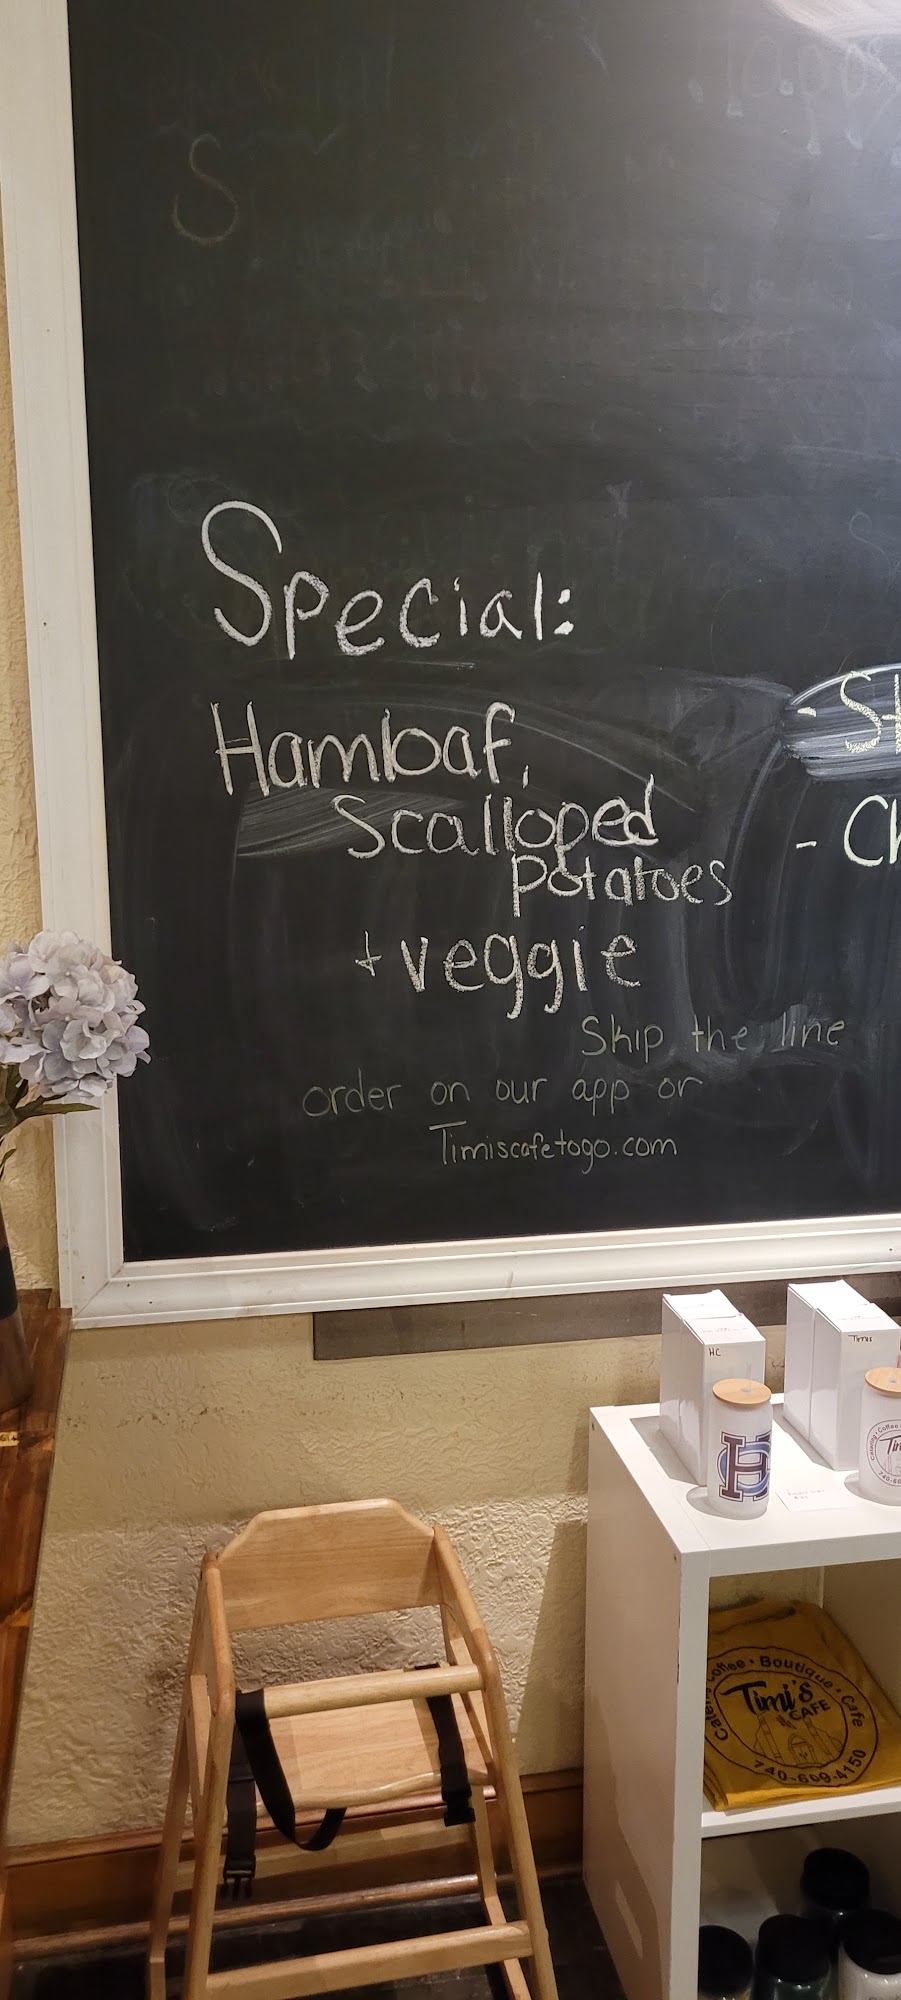 S
Special:
Hamloaf,
Scalloped
Potatoes
+ veggie
- St
- Ch
Skip the line
order on our app or
Timiscafetogo.com
HC
Timis
HO
Coffee • Boutique • Cafe
Timi's
CAFE
740-669-4150